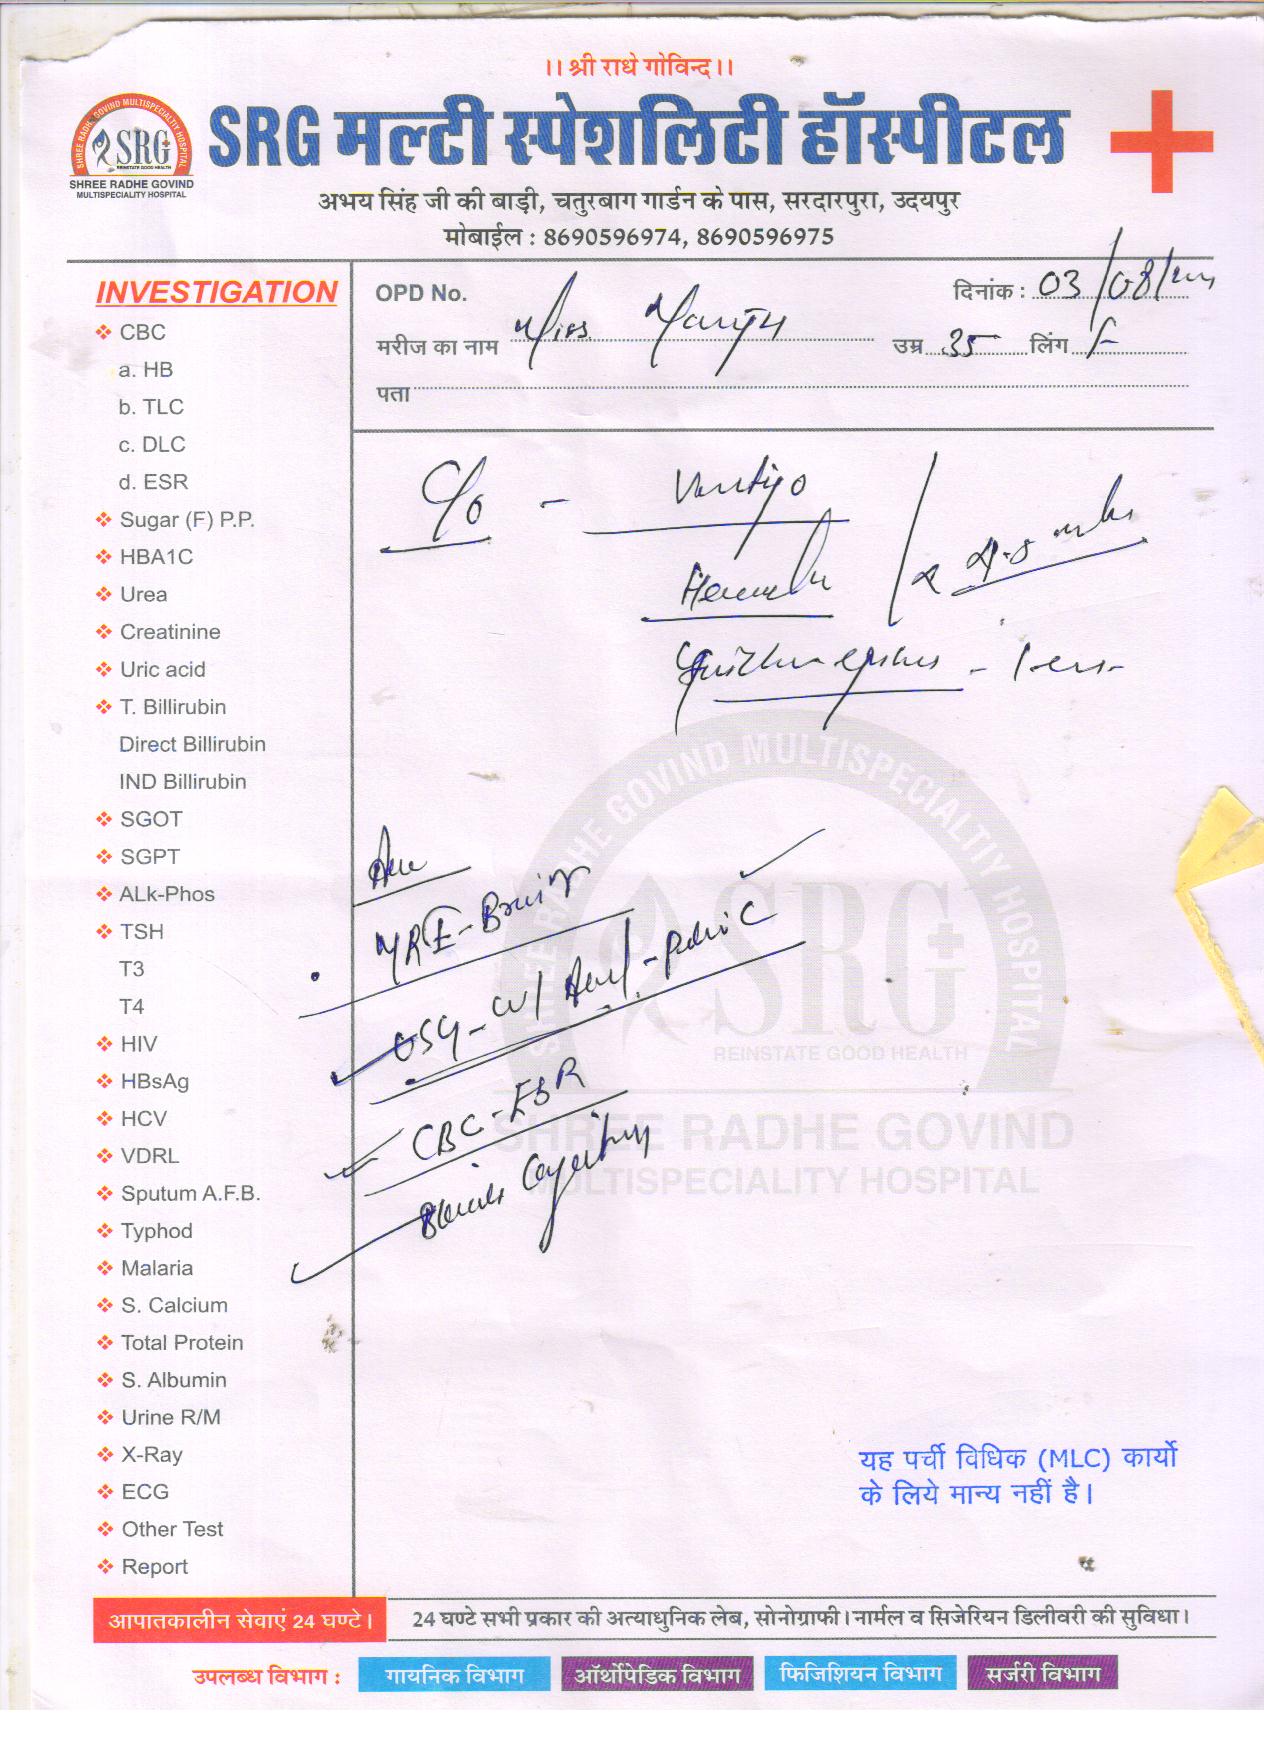 ।। श्री राधे गोविन्द।।
SHREE RADHE GOVIND MULTISPECIALTIY HOSPITAL
SRG
REINSTATE GOOD HEALTH
SHREE RADHE GOVIND
MULTISPECIALITY HOSPITAL
SRG मल्टी स्पेशलिटी हॉस्पीटल
अभय सिंह जी की बाड़ी, चतुरबाग गार्डन के पास, सरदारपुरा, उदयपुर
मोबाईल : 8690596974, 8690596975
OPD No.
दिनांक : 03/08/
मरीज का नाम Mrs. Manju उम्र 35 लिंग F
पता
INVESTIGATION
CBC
a. HB
b. TLC
c. DLC
d. ESR
Sugar (F) P.P.
HBA1C
Urea
Creatinine
Uric acid
T. Billirubin
Direct Billirubin
IND Billirubin
SGOT
SGPT
ALk-Phos
TSH
T3
T4
HIV
HBsAg
HCV
VDRL
Sputum A.F.B.
Typhod
Malaria
S. Calcium
Total Protein
S. Albumin
Urine R/M
X-Ray
ECG
Other Test
Report
C/o - Vertigo
MRI - Brain
USG - W/ Abd - Pelvic
CBC - ESR
SHREE RADHE GOVIND MULTISPECIALTIY HOSPITAL
SRG
REINSTATE GOOD HEALTH
SHREE RADHE GOVIND
MULTISPECIALITY HOSPITAL
यह पर्ची विधिक (MLC) कार्यो
के लिये मान्य नहीं है।
आपातकालीन सेवाएं 24 घण्टे।
24 घण्टे सभी प्रकार की अत्याधुनिक लेब, सोनोग्राफी। नार्मल व सिजेरियन डिलीवरी की सुविधा।
उपलब्ध विभाग : गायनिक विभाग ऑर्थोपेडिक विभाग फिजिशियन विभाग सर्जरी विभाग